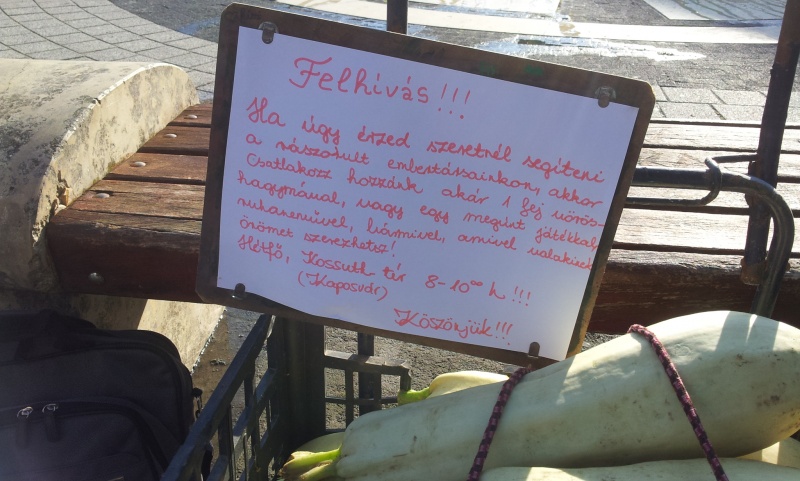 Felhívás!!!
Ha úgy érzed szeretnél segíteni
a rászorult embertársainkon, akkor
Csatlakozz hozzánk akár 1 fej vörös-
hagymával, vagy egy megunt játékkal,
ruhaneművel, bármivel, amivel valakinek
örömet szerezhetsz!
Hétfő, Kossuth tér 8-10⁰⁰ h!!!
(Kaposvár)
Köszönjük!!!